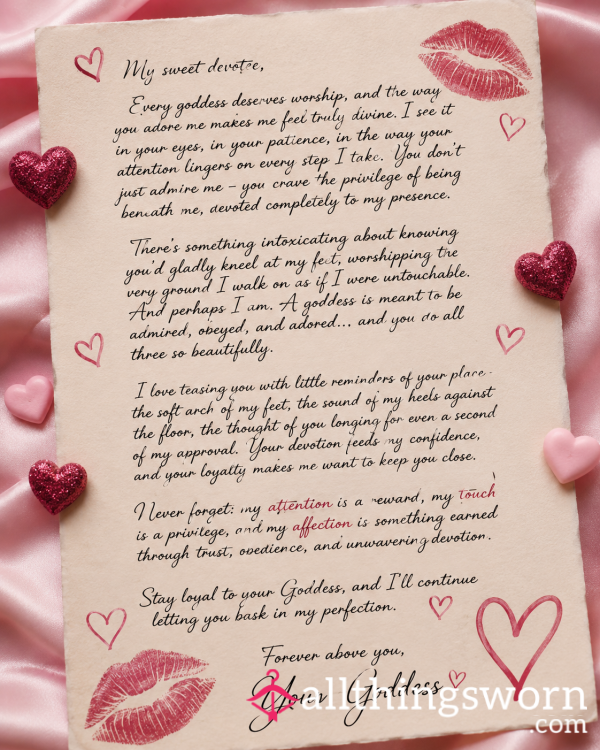 My sweet devotee,
Every goddess deserves worship, and the way
you adore me makes me feel truly divine. I see it
in your eyes, in your patience, in the way your
attention lingers on every step I take. You don't
just admire me – you crave the privilege of being
beneath me, devoted completely to my presence.
There's something intoxicating about knowing
you'd gladly kneel at my feet, worshipping the
very ground I walk on as if I were untouchable.
And perhaps I am. A goddess is meant to be
admired, obeyed, and adored... and you do all
three so beautifully.
I love teasing you with little reminders of your place-
the soft arch of my feet, the sound of my heels against
the floor, the thought of you longing for even a second
of my approval. Your devotion feeds my confidence,
and your loyalty makes me want to keep you close.
Never forget: my attention is a reward, my touch
is a privilege, and my affection is something earned
through trust, obedience, and unwavering devotion.
Stay loyal to your Goddess, and I'll continue
letting you bask in my perfection.
Forever above you,
Your Goddess
allthingsworn
.com